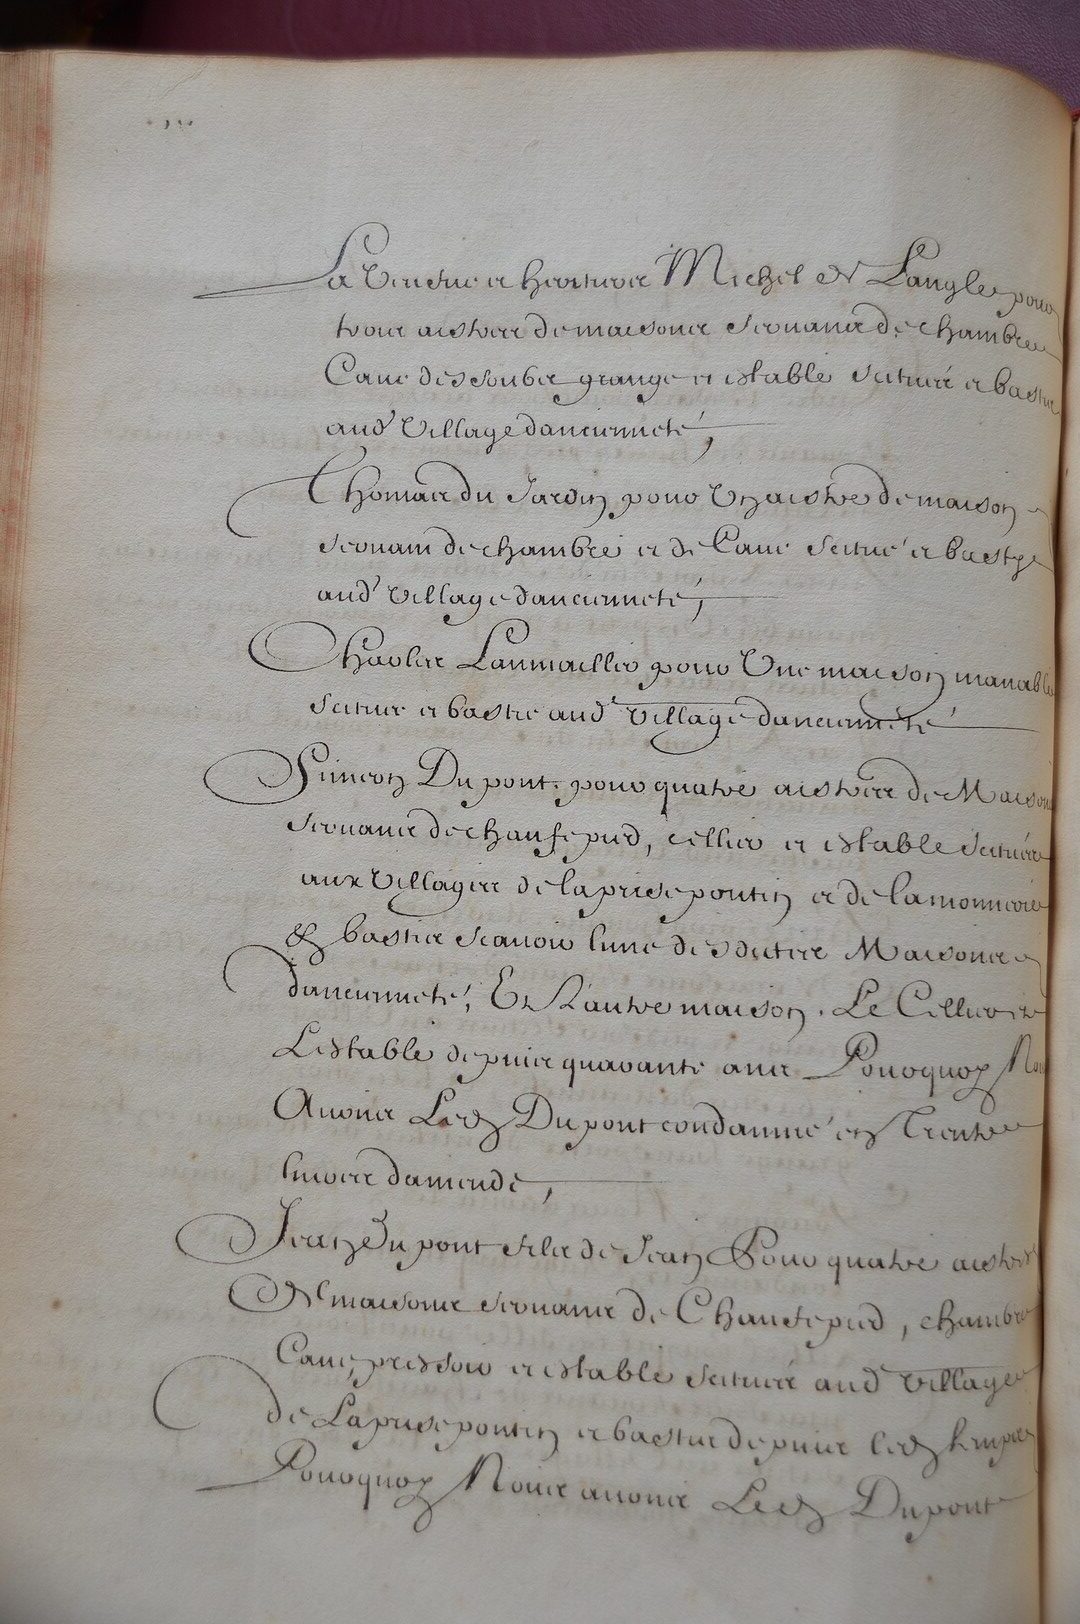 La Veusue et heritiers Michel de Langles pour
trois aistres de maisons seruans de chambres
Caue dessoubs grange et estable scitues et bastis
aud' Village d'ancienneté,
Thomas du Jardin pour Un aistre de maison
seruant de chambre et de Caue scitué et basty
aud' Village d'ancienneté,
Charles Lanmoillier pour Une maison manable
scituee et bastie aud' Village d'ancienneté
Simeon Du pont pour quatre aistres de Maisons
seruans de chaufepied, cellier et estable scitués
aux Villages de la prise pontin et de la monnerie
& bastis scauoir l'une desdites Maisons
d'ancienneté, Et L'autre maison. Le Cellier et
L'estable depuis quarante ans Pourquoy Nous
Auons Led Dupont condamné en Trente
liures d'amende,
Jean Du pont fils de Jean Pour quatre aistres
de maisons seruans de Chaufepied, chambre
Caue, pressoir et estable scitués aud Village
de La prise pontin et bastis depuis led temps
Pourquoy Nous auons Led Dupont